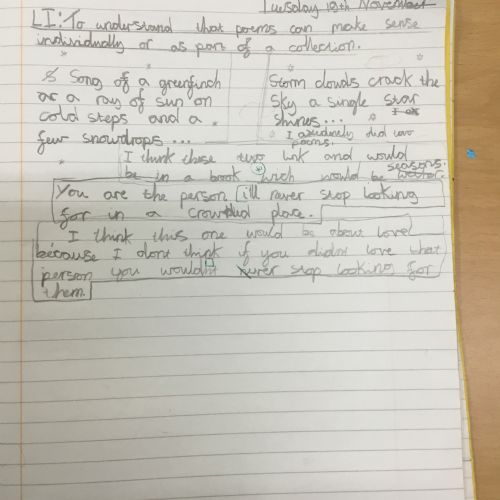 Tuesday 18th November
LI: To understand that poems can make sense
individually or as part of a collection.
Song of a greenfinch
or a ray of sun on
cold steps and a
few snowdrops...
Storm clouds crack the
sky a single star
shines...
I did two
poems.
I think these two link and would
be in a book wich would be seasons.
You are the person ill never stop looking
for in a crowded place.
I think this one would be about love
because I dont think if you didnt love that
person you wouldnt never stop looking for
them.